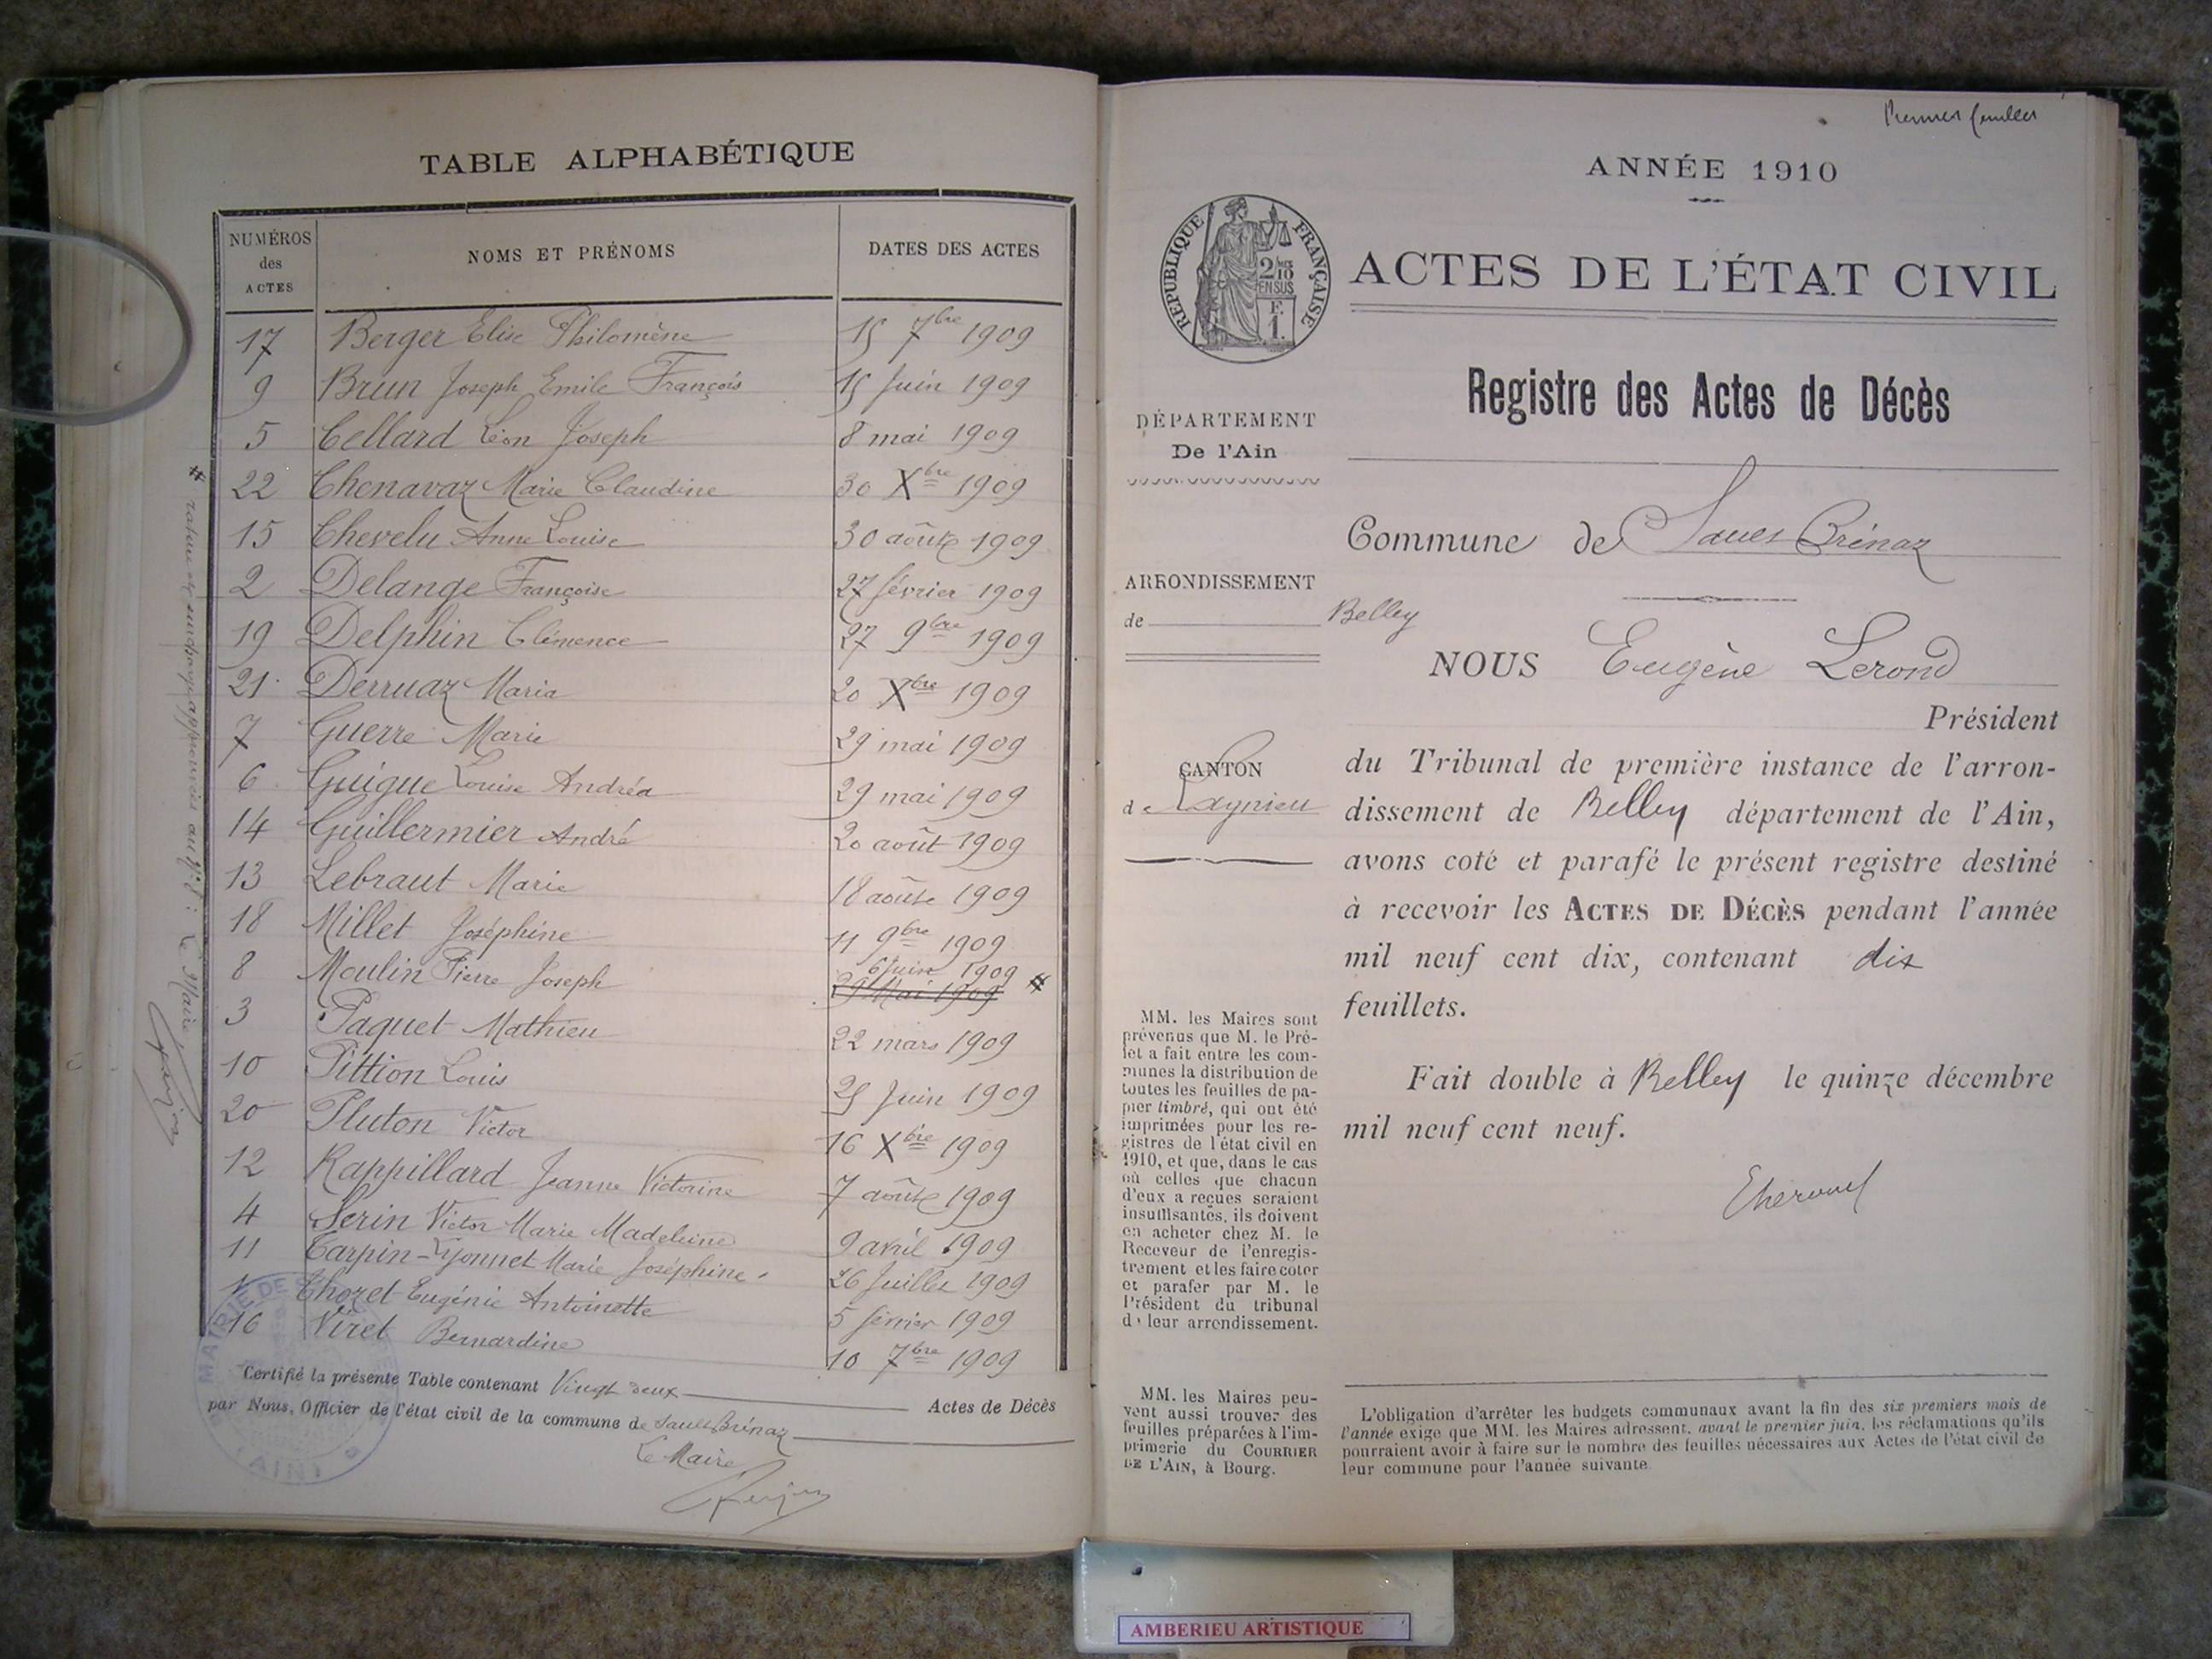 TABLE ALPHABÉTIQUE
NUMÉROS des ACTES
NOMS ET PRÉNOMS
DATES DES ACTES
17 Berger Elise Philomène 15 7bre 1909
9 Brun Joseph Emile François 15 Juin 1909
5 Cellard Léon Joseph 8 mai 1909
22 Chenavaz Marie Claudine 30 Xbre 1909
15 Chevelu Anne Louise 30 août 1909
2 Delange Françoise 27 février 1909
19 Delphin Clémence 27 9bre 1909
21 Derruaz Maria 20 Xbre 1909
7 Guerre Marie 29 mai 1909
6 Guigue Louise Andréa 29 mai 1909
14 Guillermier André 20 août 1909
13 Lebraut Marie 18 août 1909
18 Millet Joséphine 11 9bre 1909
8 Moulin Pierre Joseph 6 Juin 1909 #
29 Mai 1909
3 Paquet Mathieu 22 mars 1909
10 Pittion Louis 25 Juin 1909
20 Pluton Victor 16 Xbre 1909
12 Rappillard Jeanne Victorine 7 août 1909
4 Serin Victor Marie Madeleine 9 avril 1909
11 Tarpin-Lyonnet Marie Joséphine 26 Juillet 1909
1 Thozet Eugénie Antoinette 5 février 1909
16 Viret Bernardine 10 7bre 1909
Certifié la présente Table contenant Vingt deux Actes de Décès
par Nous, Officier de l'état civil de la commune de Sault Brénaz
Le Maire
# rature et surcharge approuvées au No 8 : Le Maire
MAIRIE DE
(AIN)
Premier feuillet
ANNÉE 1910
RÉPUBLIQUE FRANÇAISE
2/10 EN SUS
F. 1.
ACTES DE L'ÉTAT CIVIL
Registre des Actes de Décès
DÉPARTEMENT
De l'Ain
Commune de Sault Brénaz
ARRONDISSEMENT
de Belley
NOUS Eugène Lerond
Président
CANTON
de Lagnieu
du Tribunal de première instance de l'arron-
dissement de Belley département de l'Ain,
avons coté et parafé le présent registre destiné
à recevoir les ACTES DE DÉCÈS pendant l'année
mil neuf cent dix, contenant dix
feuillets.
Fait double à Belley le quinze décembre
mil neuf cent neuf.
MM. les Maires sont
prévenus que M. le Pré-
fet a fait entre les com-
munes la distribution de
toutes les feuilles de pa-
pier timbré, qui ont été
imprimées pour les re-
gistres de l'état civil en
1910, et que, dans le cas
où celles que chacun
d'eux a reçues seraient
insuffisantes, ils doivent
en acheter chez M. le
Receveur de l'enregis-
trement et les faire coter
et parafer par M. le
Président du tribunal
de leur arrondissement.
MM. les Maires peu-
vent aussi trouver des
feuilles préparées à l'im-
primerie du COURRIER
DE L'AIN, à Bourg.
L'obligation d'arrêter les budgets communaux avant la fin des six premiers mois de
l'année exige que MM. les Maires adressent, avant le premier juin, les réclamations qu'ils
pourraient avoir à faire sur le nombre des feuilles nécessaires aux Actes de l'état civil de
leur commune pour l'année suivante.
AMBERIEU ARTISTIQUE